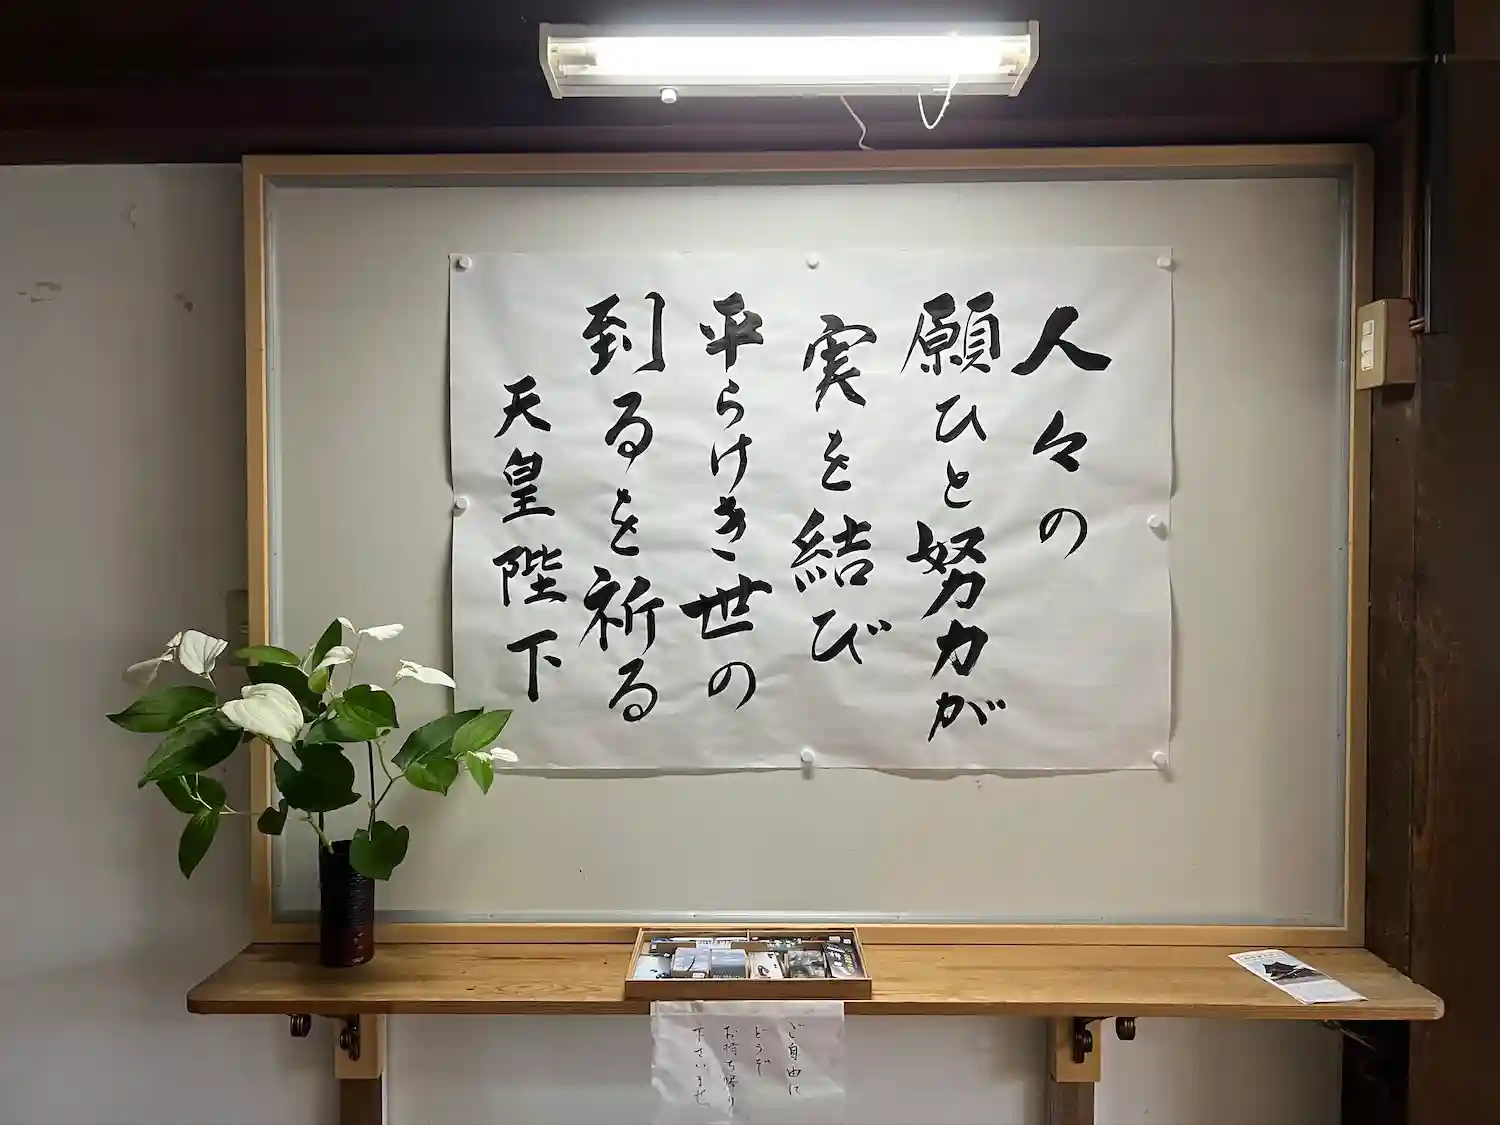 人々の
願ひと努力が
実を結び
平らけき世の
到るを祈る
天皇陛下
ご自由に
どうぞ
お持ち帰り
下さいませ